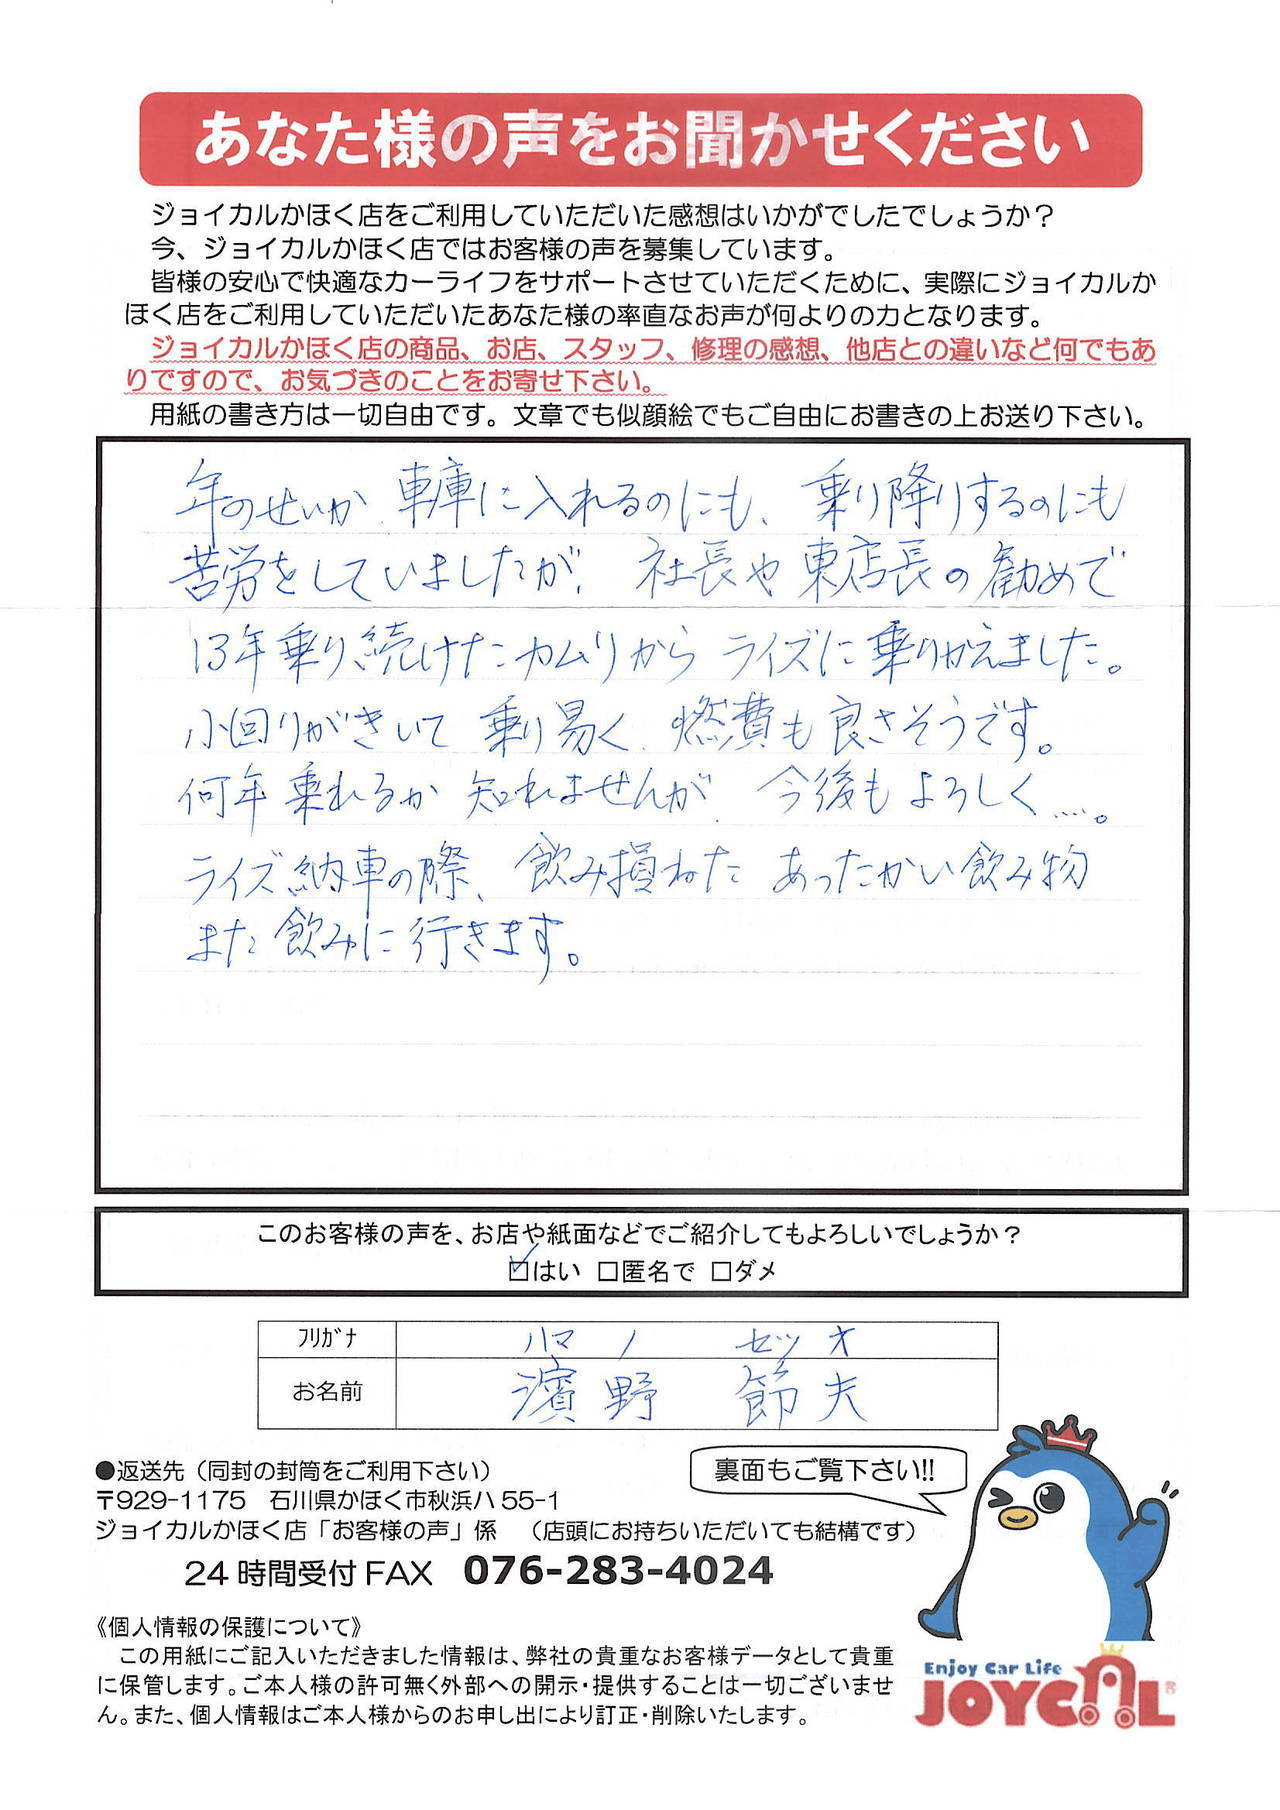 あなた様の声をお聞かせください
ジョイカルかほく店をご利用していただいた感想はいかがでしたでしょうか？
今、ジョイカルかほく店ではお客様の声を募集しています。
皆様の安心で快適なカーライフをサポートさせていただくために、実際にジョイカルか
ほく店をご利用していただいたあなた様の率直なお声が何よりの力となります。
ジョイカルかほく店の商品、お店、スタッフ、修理の感想、他店との違いなど何でもあ
りですので、お気づきのことをお寄せ下さい。
用紙の書き方は一切自由です。文章でも似顔絵でもご自由にお書きの上お送り下さい。
年のせいか、車庫に入れるのにも、乗り降りするのにも
苦労をしていましたが、社長や東店長の勧めで
13年乗り続けたカムリからライズに乗りかえました。
小回りがきいて乗り易く、燃費も良さそうです。
何年乗れるか知れませんが、今後もよろしく……。
ライズ納車の際、飲み損ねたあったかい飲み物
また飲みに行きます。
このお客様の声を、お店や紙面などでご紹介してもよろしいでしょうか？
☑はい □匿名で □ダメ
ﾌﾘｶﾞﾅ ハマノ セツオ
お名前 濱野 節夫
裏面もご覧下さい!!
●返送先（同封の封筒をご利用下さい）
〒929-1175 石川県かほく市秋浜ハ55-1
ジョイカルかほく店「お客様の声」係 （店頭にお持ちいただいても結構です）
24時間受付FAX 076-283-4024
《個人情報の保護について》
この用紙にご記入いただきました情報は、弊社の貴重なお客様データとして貴重
に保管します。ご本人様の許可無く外部への開示・提供することは一切ございませ
ん。また、個人情報はご本人様からのお申し出により訂正・削除いたします。
Enjoy Car Life
JOYCAL®